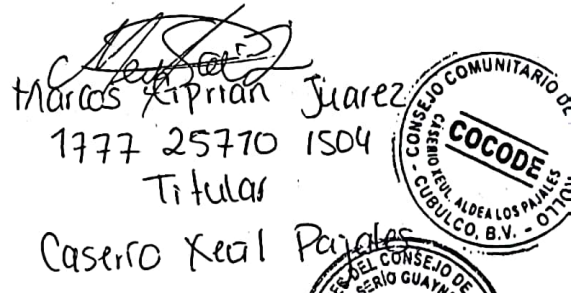 Marcos Xiprian Juarez
1777 25770 1504
Titular
Caserio Xeúl Pajales
CONSEJO COMUNITARIO DE
COCODE
CASERIO XEUL, ALDEA LOS PAJALES
CUBULCO, B.V.
DEL CONSEJO DE